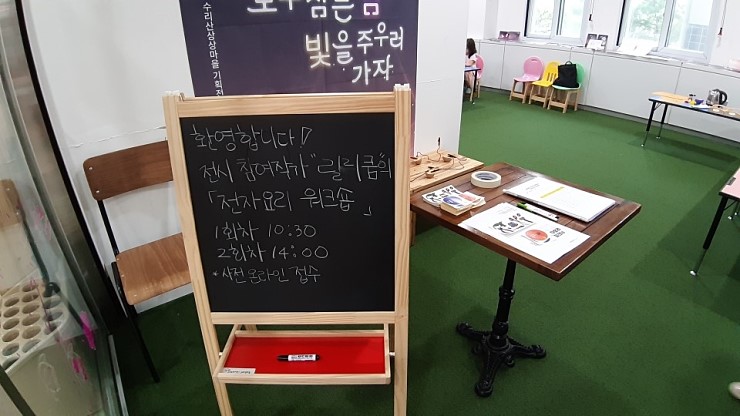 수리산상상마을 기획전
빛을 주우러
가자
환영합니다!
전시 참여작가 "릴리쿰"의
「전자요리 워크숍」
1회차 10:30
2회차 14:00
*사전 온라인 접수